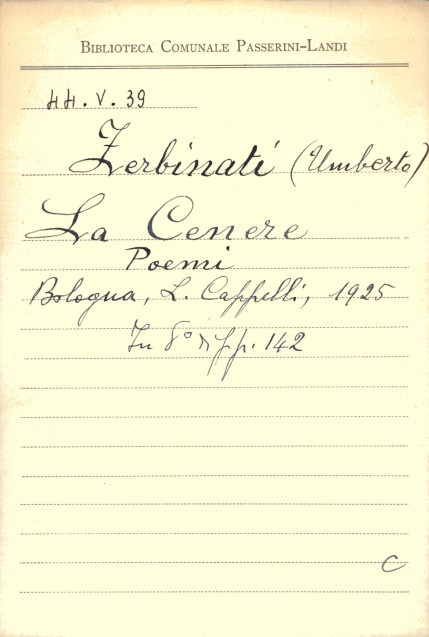 BIBLIOTECA COMUNALE PASSERINI-LANDI
44. V. 39
Zerbinati (Umberto)
La Cenere
Poemi
Bologna, L. Cappelli, 1925
In 8° di pp. 142
C